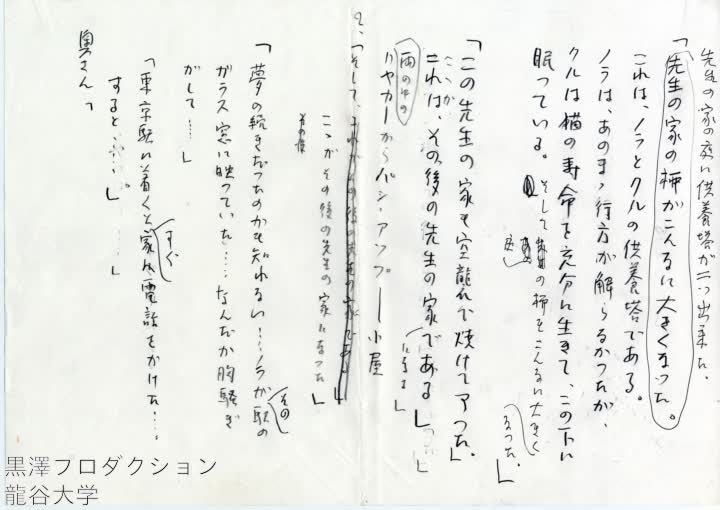 先生の家の庭に供養塔が二つ出来た。
「先生の家の柿がこんなに大きくなった。
これは、ノラとクルの供養塔である。
ノラは、あのまゝ行方が解らなかったが、
クルは猫の寿命を充分に生きて、この下に
眠っている。
そして の柿もこんなに大きく
なった。」
「この先生の家も空襲で焼けて了った。」
ここが
これは、その後の先生の家である」
になる」
雨の中の
と、「そして、それがその後の先生の家である」
ここがその後の先生の家になった」
その後
「夢の続きだったのかも知れない…ノラが駅の
その
ガラス窓に映っていた…なんだか胸騒ぎ
がして……」
「東京駅に着くと家へ電話をかけた…。
すぐ
すると……。」
……」
奥さん「
黒澤プロダクション
龍谷大学